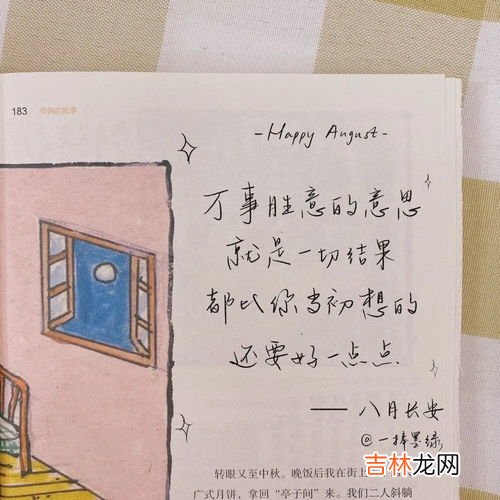 183 我俩的故事
-Happy August-
万事胜意的意思
就是一切结果
都比你当初想的
还要好一点点
—— 八月长安
@一捧墨绿
吉林龙网
转眼又至中秋。晚饭后我在街上
广式月饼，拿回“亭子间”来。我们二人斜躺